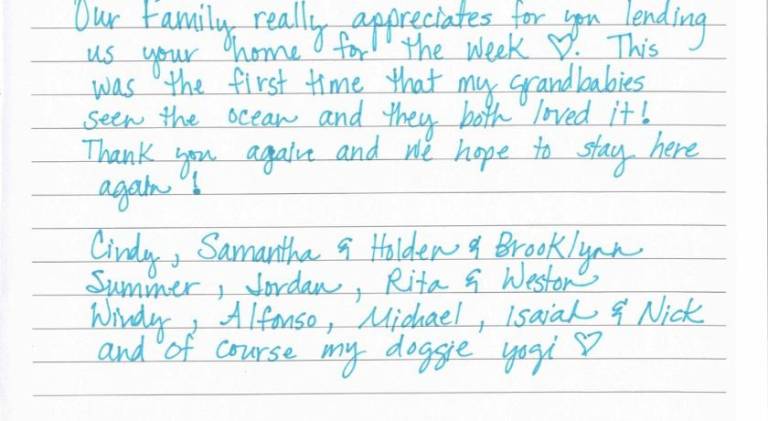 Our Family really appreciates for you lending
us your home for the week ♡. This
was the first time that my grandbabies
seen the ocean and they both loved it!
Thank you again and we hope to stay here
again!
Cindy, Samantha & Holden & Brooklynn
Summer, Jordan, Rita & Weston
Windy, Alfonso, Michael, Isaiah & Nick
and of course my doggie yogi ♡